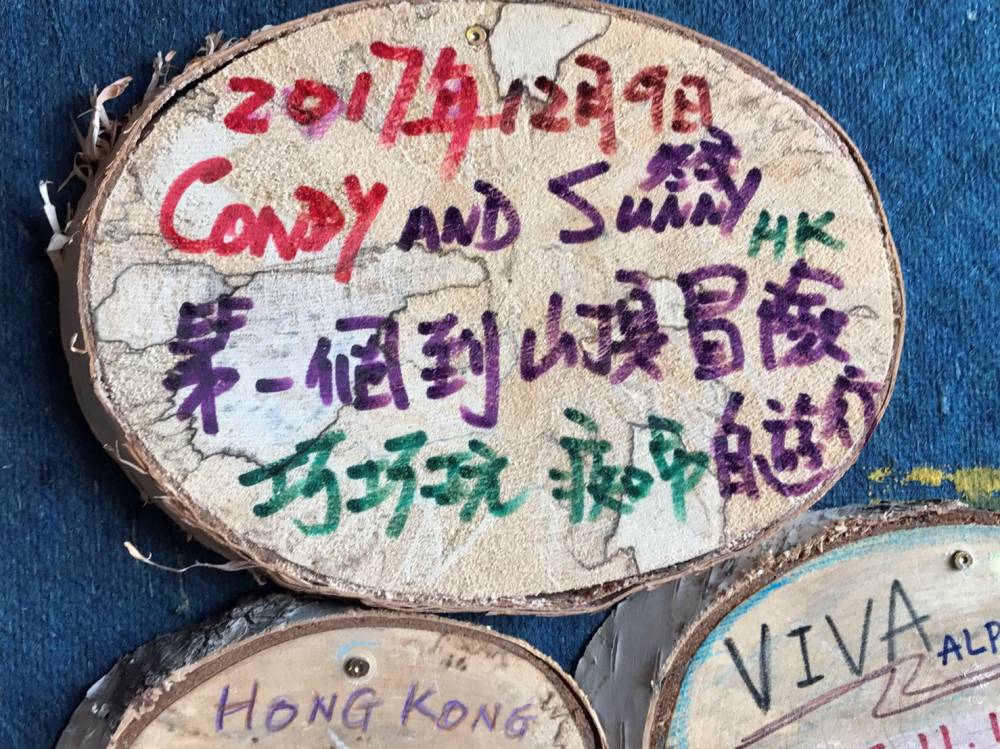 2017年12月9日
CANDY AND Sunny HK
第一個到山頂冒險
巧巧玩 自遊行
HONG KONG
VIVA ALP